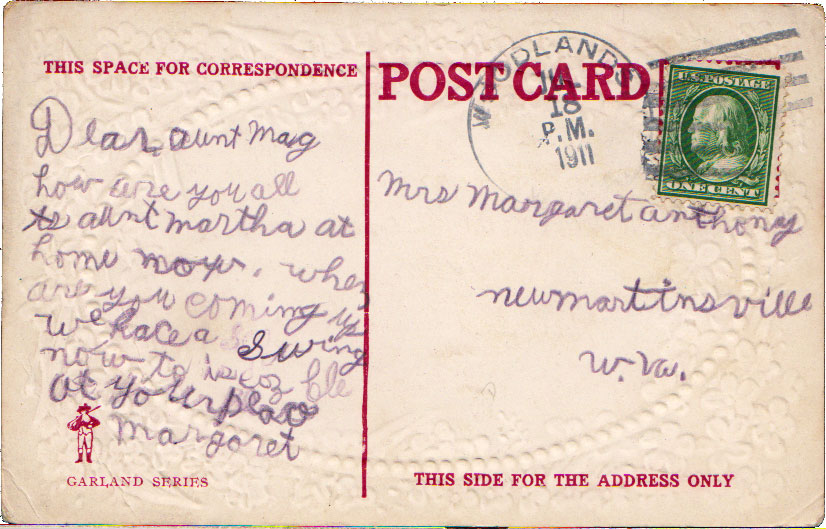 THIS SPACE FOR CORRESPONDENCE
Dear aunt Mag
how are you all
Is aunt martha at
home now. when
are you coming up
we hace a Swing
now to is
at your place
Margaret
GARLAND SERIES
POST CARD
WOODLANDS
JUL
18
P.M.
1911
U.S. POSTAGE
ONE CENT
Mrs Margaret anthony
newmartinsville
W. Va.
THIS SIDE FOR THE ADDRESS ONLY